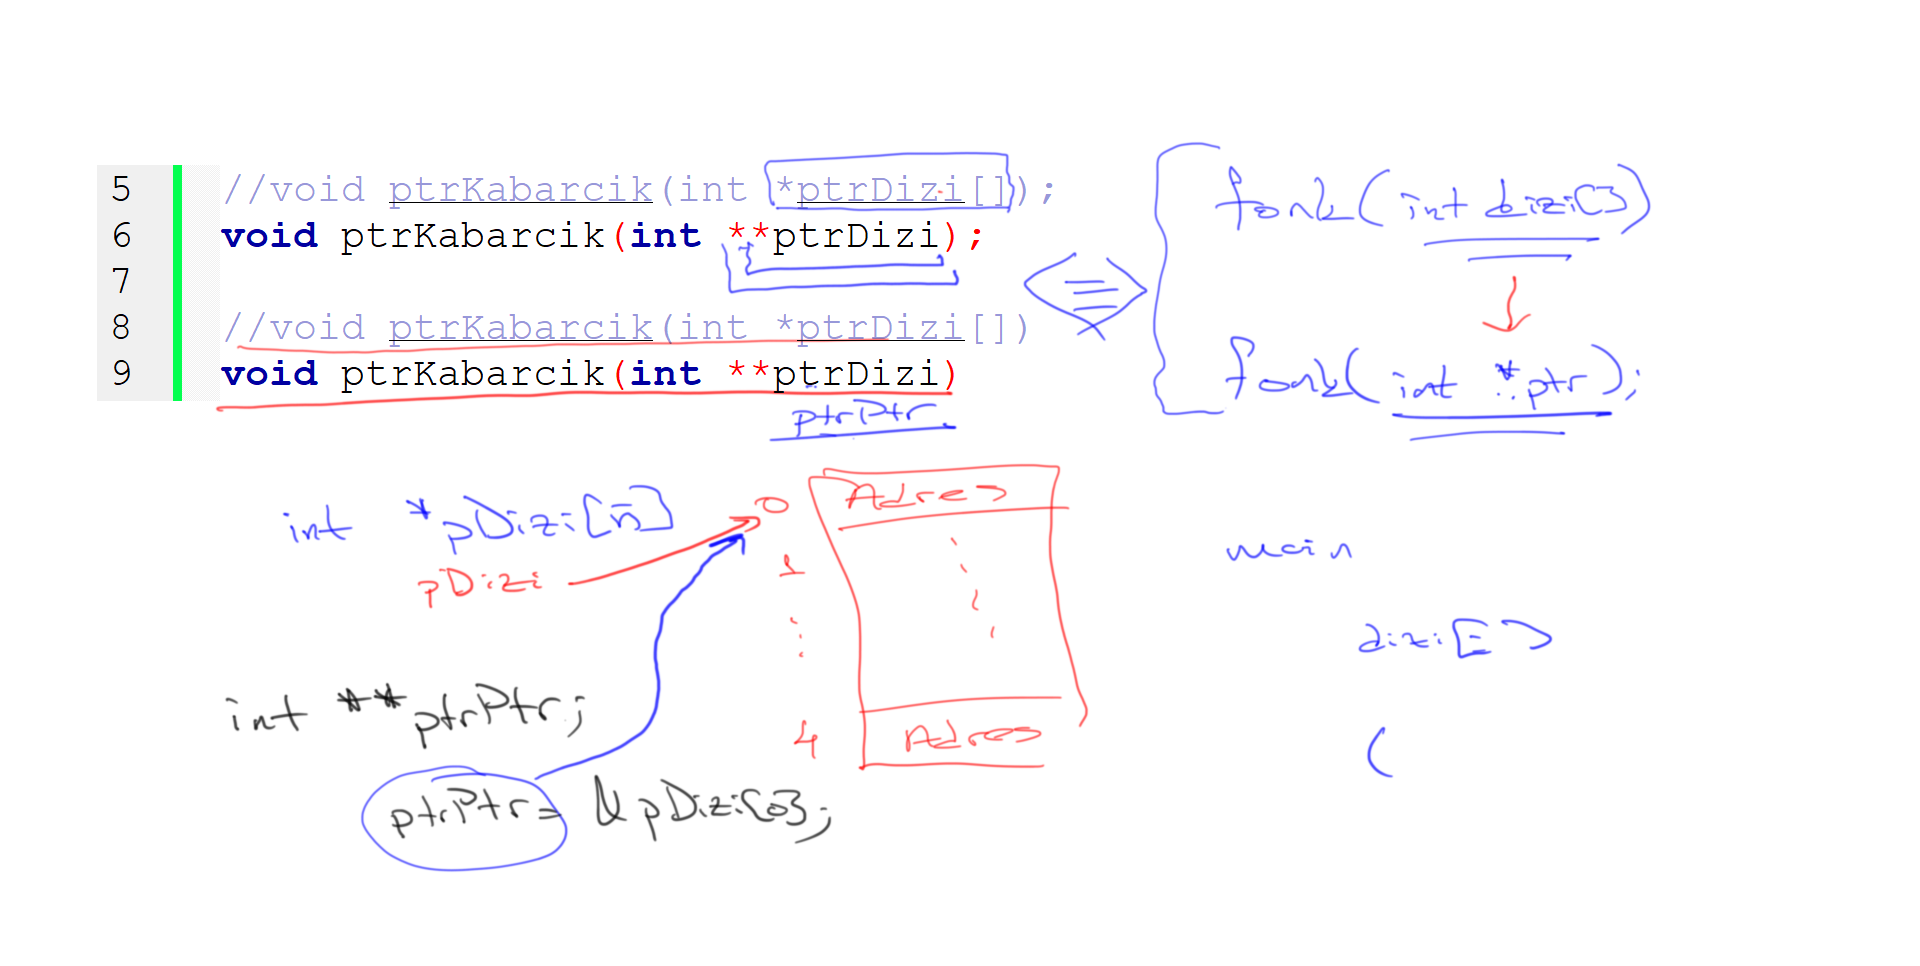 5 //void ptrKabarcik(int *ptrDizi[]);
6 void ptrKabarcik(int **ptrDizi);
7
8 //void ptrKabarcik(int *ptrDizi[])
9 void ptrKabarcik(int **ptrDizi)
ptrPtr
fonk(int dizi[])
fonk(int *ptr);
int *pDizi[n]
pDizi
0 Adres
1
4 Adres
int **ptrPtr;
ptrPtr = &pDizi[0];
main
dizi[ ]
(